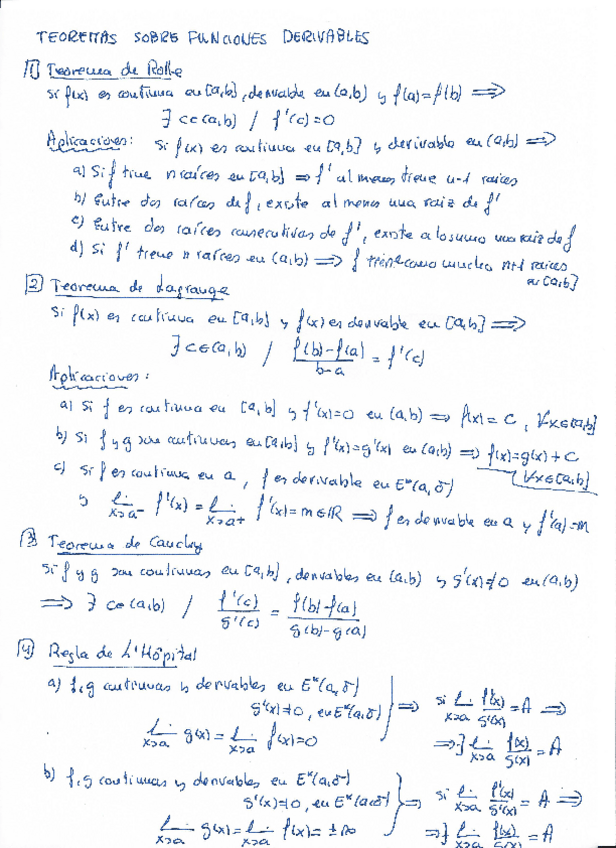 TEOREMAS SOBRE FUNCIONES DERIVABLES
1) Teorema de Rolle
Si f(x) es continua en [a,b], derivable en (a,b) y f(a)=f(b) ⟹
∃ c∈(a,b) / f'(c)=0
Aplicaciones: Si f(x) es continua en [a,b] y derivable en (a,b) ⟹
a) Si f tiene n raíces en [a,b] ⟹ f' al menos tiene n-1 raíces
b) Entre dos raíces de f, existe al menos una raíz de f'
c) Entre dos raíces consecutivas de f', existe a lo sumo una raíz de f
d) Si f' tiene n raíces en (a,b) ⟹ f tiene como mucho n+1 raíces
en [a,b]
2) Teorema de Lagrange
Si f(x) es continua en [a,b] y f(x) es derivable en [a,b] ⟹
∃ c∈(a,b) / (f(b)-f(a))/(b-a) = f'(c)
Aplicaciones:
a) Si f es continua en [a,b] y f'(x)=0 en (a,b) ⟹ f(x)=C, ∀x∈[a,b]
b) Si f y g son continuas en [a,b] y f'(x)=g'(x) en (a,b) ⟹ f(x)=g(x)+C
∀x∈[a,b]
c) Si f es continua en a, f es derivable en E*(a,δ)
y lim x→a- f'(x) = lim x→a+ f'(x)=m∈ℝ ⟹ f es derivable en a y f'(a)=m
3) Teorema de Cauchy
Si f y g son continuas en [a,b], derivables en (a,b) y g'(x)≠0 en (a,b)
⟹ ∃ c∈(a,b) / f'(c)/g'(c) = (f(b)-f(a))/(g(b)-g(a))
4) Regla de L'Hôpital
a) f,g continuas y derivables en E*(a,δ)
g'(x)≠0, en E*(a,δ) ⟹ si lim x→a f'(x)/g'(x) = A ⟹
lim x→a g(x) = lim x→a f(x)=0 ⟹ ∃ lim x→a f(x)/g(x) = A
b) f,g continuas y derivables en E*(a,δ)
g'(x)≠0, en E*(a,δ) ⟹ si lim x→a f'(x)/g'(x) = A ⟹
lim x→a g(x) = lim x→a f(x) = ±∞ ⟹ ∃ lim x→a f(x)/g(x) = A